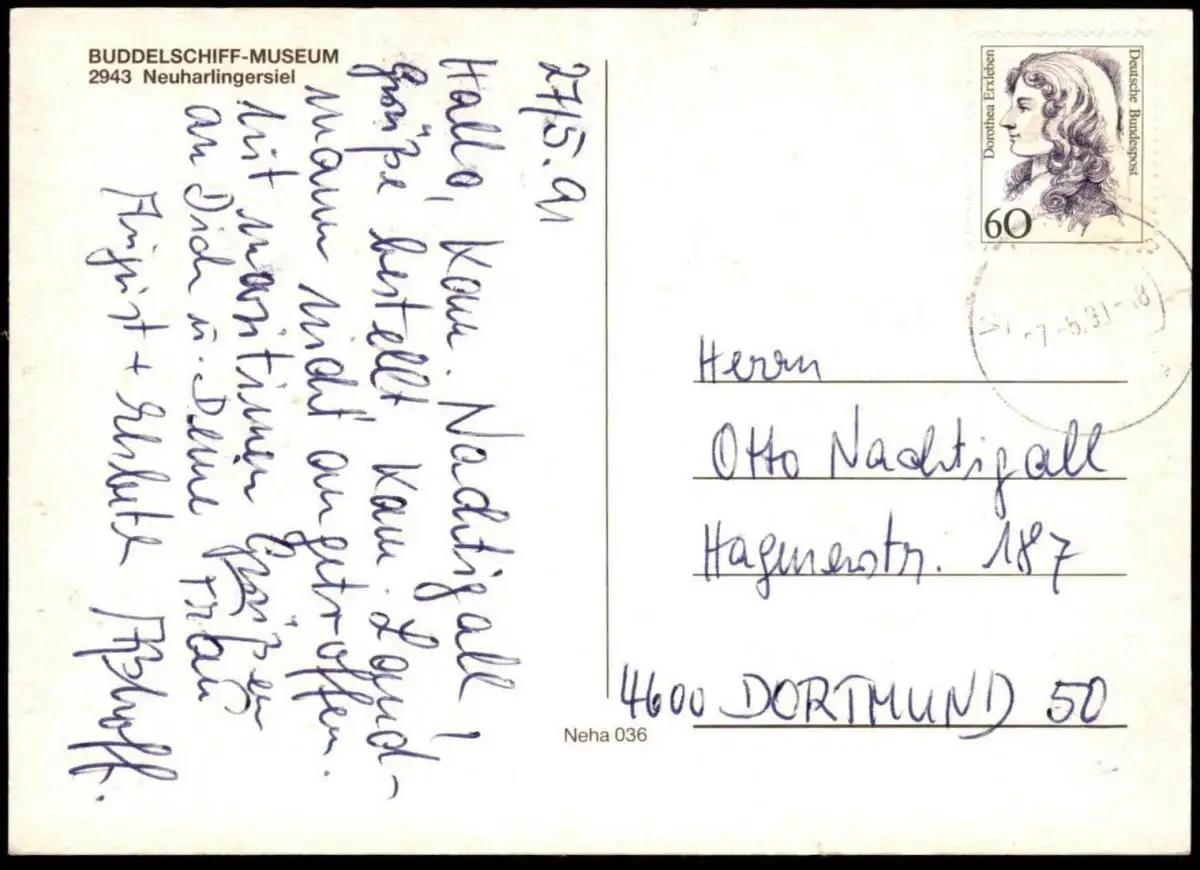 BUDDELSCHIFF-MUSEUM
2943 Neuharlingersiel
27/5.91
Hallo, Kam. Nachtigall!
Grüße bestellt Kam. Land-
mann nicht angetroffen.
Mit maritimen Grüßen
an Dich u. Deine Frau
August + Elsbeth
Deutsche Bundespost
Dorothea Erxleben
60
Herrn
Otto Nachtigall
Hagenerstr. 187
4600 DORTMUND 50
Neha 036